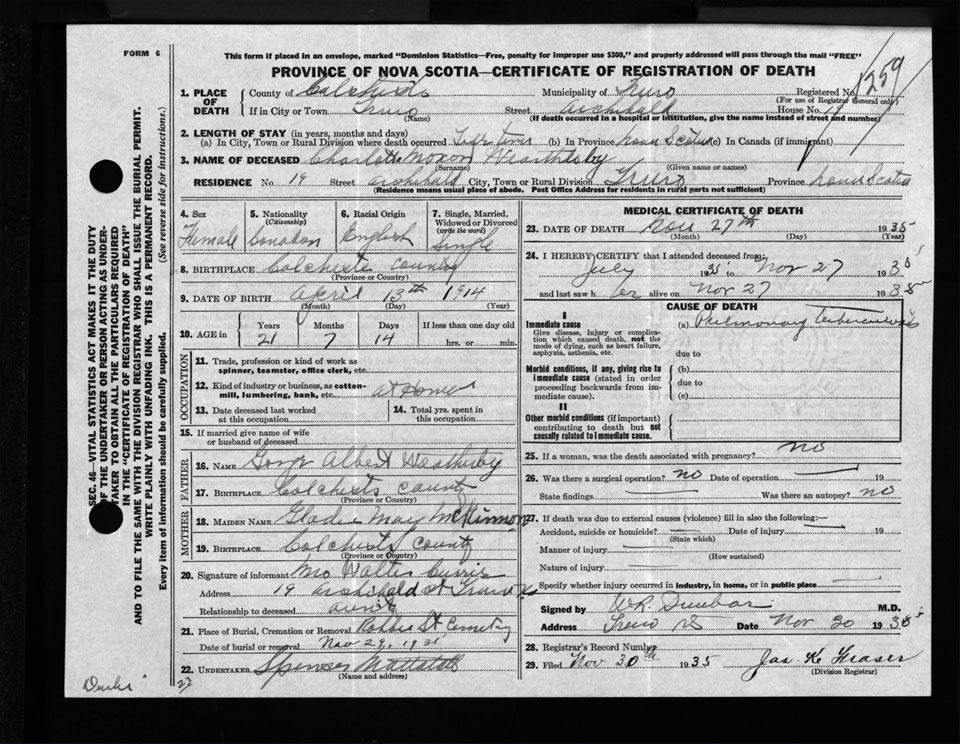 FORM 6
This form if placed in an envelope, marked "Dominion Statistics—Free, penalty for improper use $300," and properly addressed will pass through the mail "FREE"
PROVINCE OF NOVA SCOTIA—CERTIFICATE OF REGISTRATION OF DEATH
1259
1. PLACE OF DEATH County of Colchester Municipality of Truro Registered No.
(For use of Registrar General only)
If in City or Town Truro Street Archibald House No. 19
(Name) (If death occurred in a hospital or institution, give the name instead of street and number)
2. LENGTH OF STAY (in years, months and days)
(a) In City, Town or Rural Division where death occurred Life Time (b) In Province Nova Scotia (c) In Canada (if immigrant)
3. NAME OF DECEASED Charlotte Weatherby
(Surname) (Given name or names)
RESIDENCE No. 19 Street Archibald City, Town or Rural Division Truro Province Nova Scotia
(Residence means usual place of abode. Post Office Address for residents in rural parts not sufficient)
4. Sex
Female
5. Nationality
(Citizenship)
Canadian
6. Racial Origin
English
7. Single, Married, Widowed or Divorced
(write the word)
Single
8. BIRTHPLACE Colchester County
(Province or Country)
9. DATE OF BIRTH April 13th 1914
(Month) (Day) (Year)
10. AGE in Years Months Days If less than one day old
21 7 14 hrs. or min.
OCCUPATION
11. Trade, profession or kind of work as spinner, teamster, office clerk, etc.
12. Kind of industry or business, as cotton-mill, lumbering, bank, etc. at Home
13. Date deceased last worked at this occupation
14. Total yrs. spent in this occupation
15. If married give name of wife or husband of deceased
FATHER
16. NAME George Albert Weatherby
17. BIRTHPLACE Colchester County
(Province or Country)
MOTHER
18. MAIDEN NAME May McKinnon
19. BIRTHPLACE Colchester County
(Province or Country)
20. Signature of informant Mrs Walter Currie
Address 19 Archibald St Truro
Relationship to deceased aunt
21. Place of Burial, Cremation or Removal St Cemetery
Date of burial or removal Nov 29, 1935
22. UNDERTAKER
(Name and address)
22
MEDICAL CERTIFICATE OF DEATH
23. DATE OF DEATH Nov 27th 1935
(Month) (Day) (Year)
24. I HEREBY CERTIFY that I attended deceased from:
July 35 to Nov 27 1935
and last saw her alive on Nov 27 1935
CAUSE OF DEATH
I
Immediate cause (a) Pulmonary Tuberculosis
Give disease, injury or complication which caused death, not the mode of dying, such as heart failure, asphyxia, asthenia, etc.
due to
Morbid conditions, if any, giving rise to immediate cause (stated in order proceeding backwards from immediate cause).
(b)
due to
(c)
II
Other morbid conditions (if important) contributing to death but not causally related to immediate cause.
25. If a woman, was the death associated with pregnancy? no
26. Was there a surgical operation? no Date of operation 19
State findings Was there an autopsy? no
27. If death was due to external causes (violence) fill in also the following:—
Accident, suicide or homicide? Date of injury 19
(State which)
Manner of injury
(How sustained)
Nature of injury
Specify whether injury occurred in industry, in home, or in public place
Signed by W.R. Dunbar M.D.
Address Truro NS Date Nov 30 1935
28. Registrar's Record Number
29. Filed Nov 30th 1935 Jas. K. Fraser
(Division Registrar)
SEC. 46—VITAL STATISTICS ACT MAKES IT THE DUTY
OF THE UNDERTAKER OR PERSON ACTING AS UNDERTAKER
TO OBTAIN ALL THE PARTICULARS REQUIRED
IN THE "CERTIFICATE OF REGISTRATION OF DEATH"
AND TO FILE THE SAME WITH THE DIVISION REGISTRAR WHO SHALL ISSUE THE BURIAL PERMIT.
WRITE PLAINLY WITH UNFADING INK. THIS IS A PERMANENT RECORD.
Every item of information should be carefully supplied. (See reverse side for instructions.)